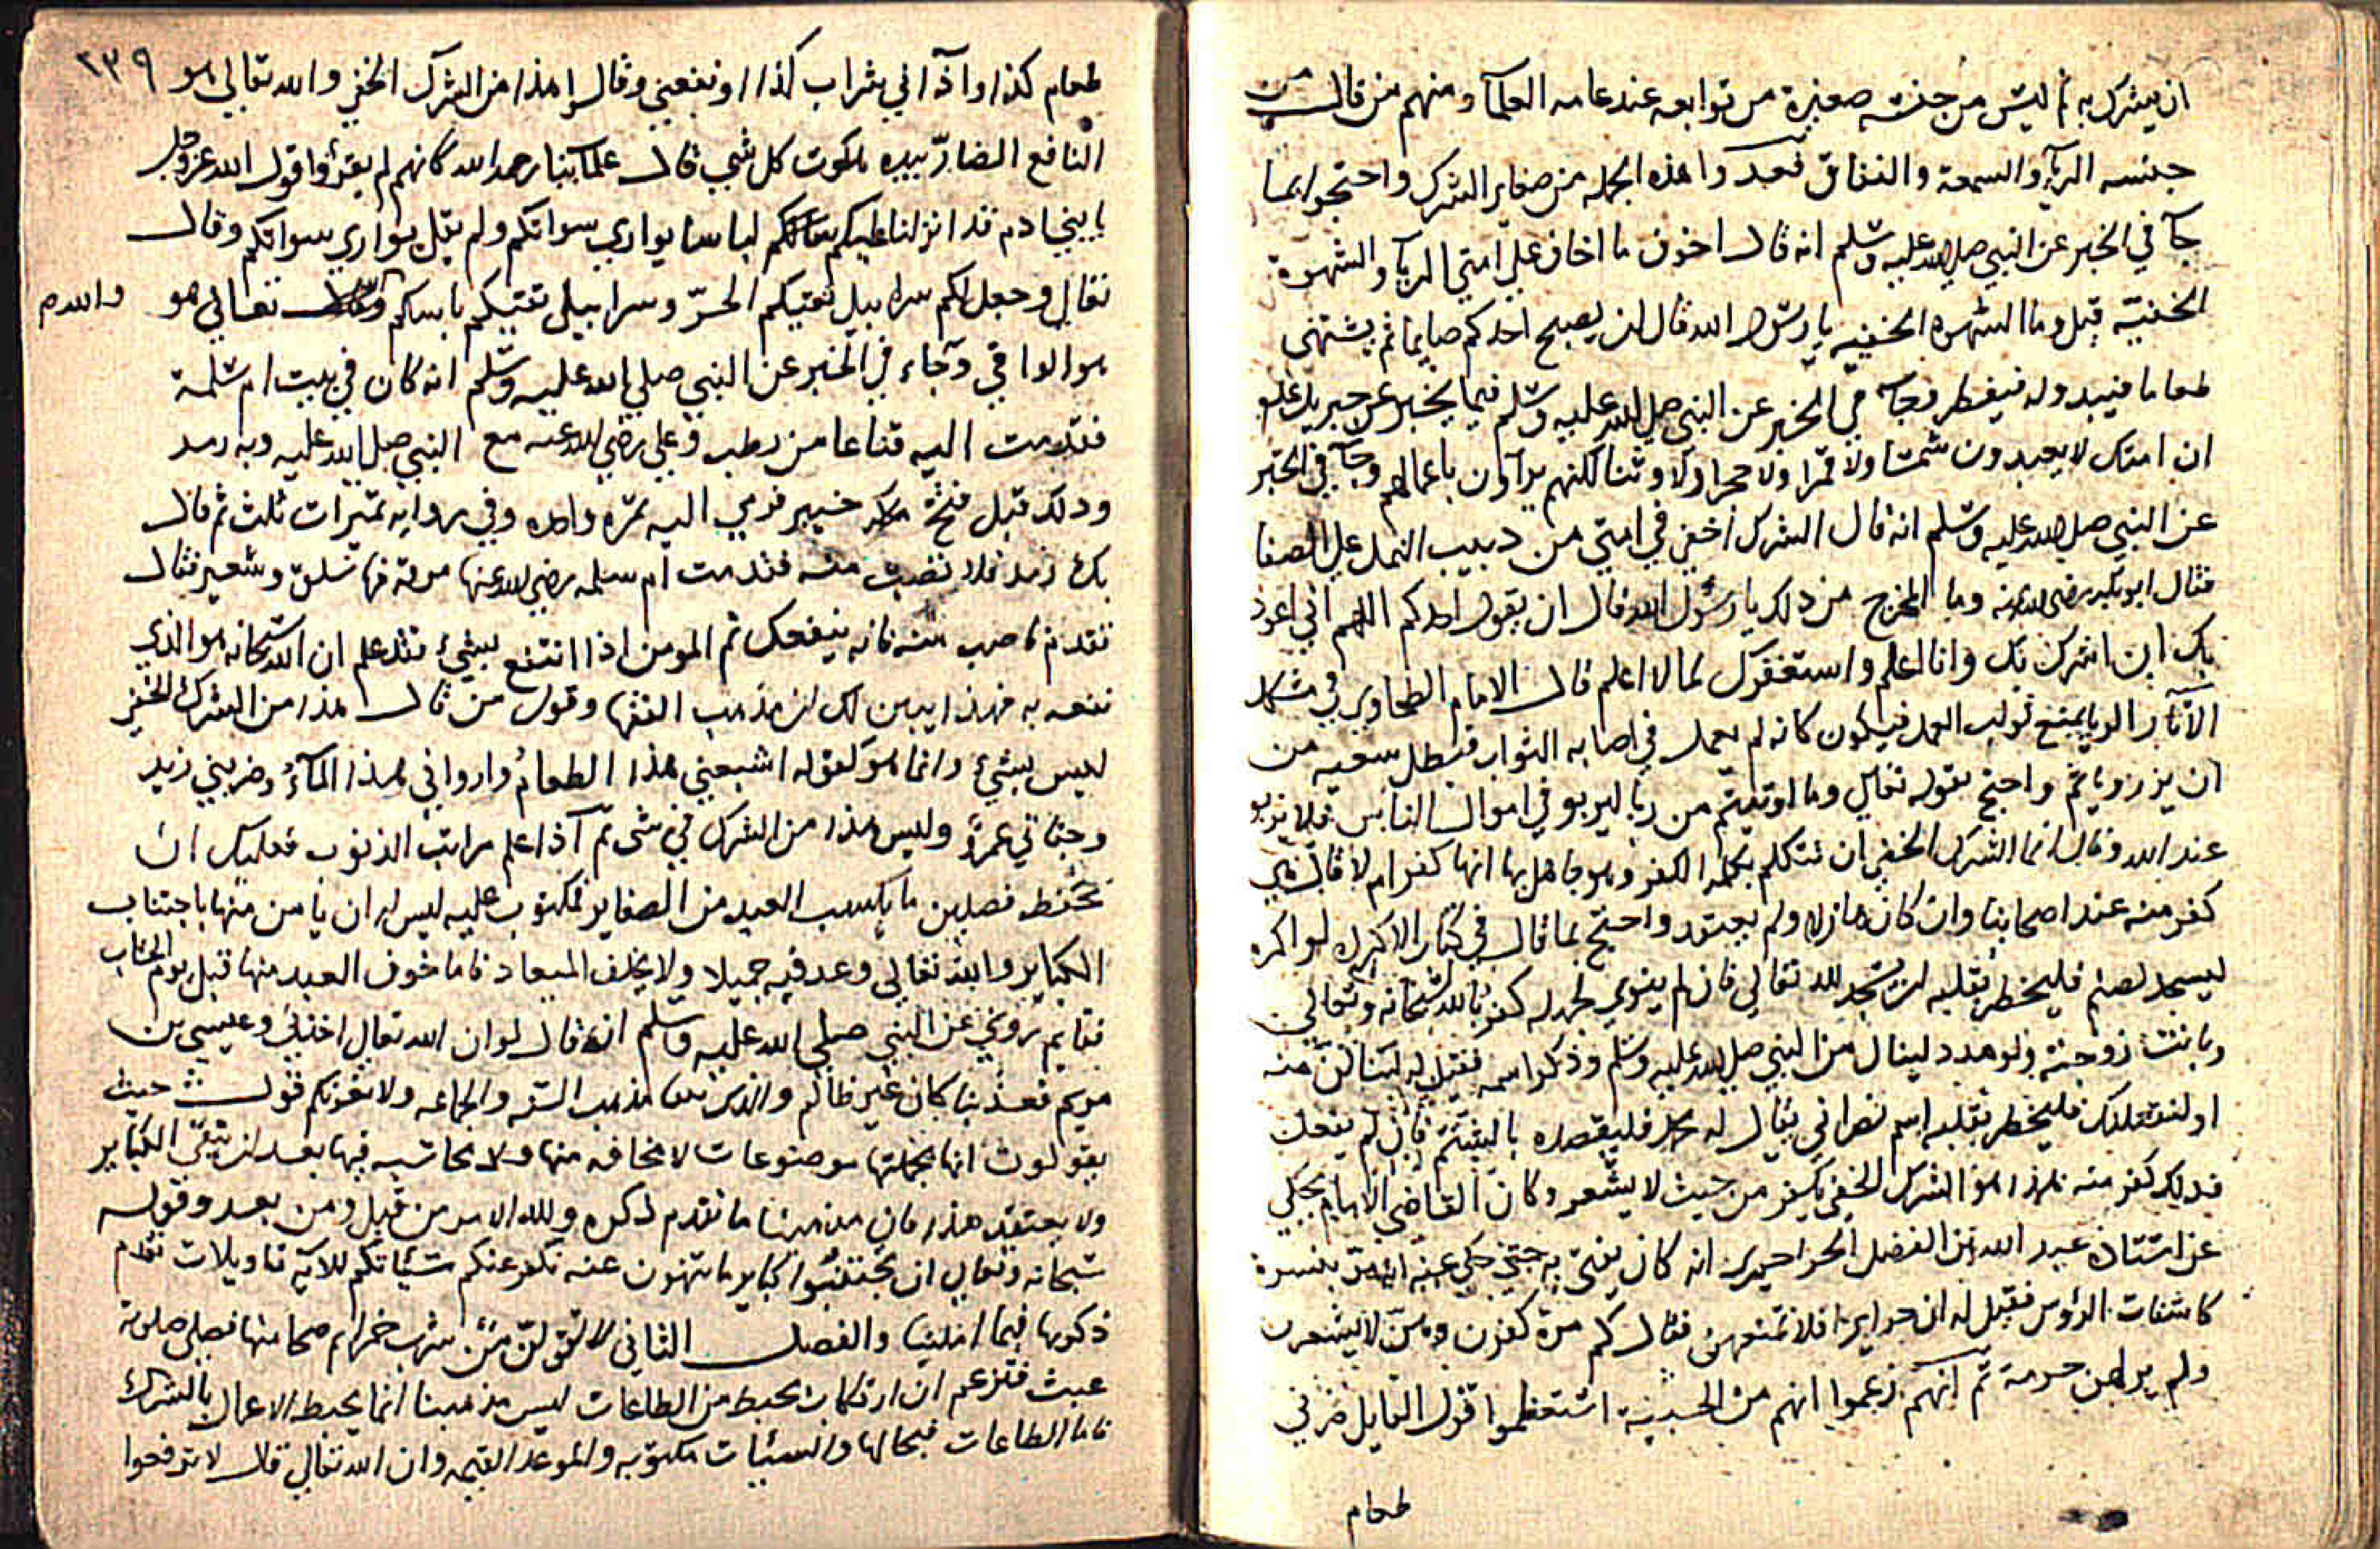 ان يشرك به ثم ليس من جنسه صغيرة من توابعه عند عامه العلمآ ومنهم من قال من
جنسه الريآ والسمعة والنفاق فعدوا هذه الجمله من صغاير الشرك واحتجوا بما
جآ في الخبر عن النبي صلى الله عليه وسلم انه قال اخوف ما اخاف علي امتي الريآ والشهوة
الخفيّة قيل وما الشهوه الخفيه يا رسول الله قال ان يصبح احدكم صايما ثم يشتهى
طعاما فيبدو له فيفطر وجآ في الخبر عن النبي صلى الله عليه وسلم فيما يخبر عن جبريل علم
ان امتك لا يعبدون شمسا ولا قمرا ولا حجرا ولا وثنا لكنهم يرآاون باعمالهم وجآ في الخبر
عن النبي صلى الله عليه وسلم انه قال الشرك اخفى في امتي من دبيب النمل علي الصفا
فقال ابو بكر رضى الله عنه وما المخرج من ذلك يا رسول الله قال ان يقول احدكم اللهم اني اعوذ
بك ان اشرك بك وانا اعلم واستغفرك لما لا اعلم قال الامام الطحاوي في مشكل
الآثار الريا يمنع ثواب العمل فيكون كانه لم يعمل في اصابه الثواب فبطل سعيه من
ان يزر وياثم واحتج بقوله تعالي وما اوتيتم من ربا ليربو في اموال الناس فلا يربو
عند الله وقال انما الشرك الخفي ان تتكلم بكلمة الكفر وهو جاهل بها انها كفر ام لا قال فهي
كفر منه عند اصحابنا وان كان هازلا ولم يعتقد واحتج بما قال في كتاب الاكراه لو اكره
ليسجد لصنم فليخطر بقلبه ان يسجد لله تعالي فان لم ينوي لهدله كفر بالله سبحانه وتعالي
وبانت زوجته ولو هدد لينال من النبي صلى الله عليه وسلم وذكر اسمه فقيل له لتنالن منه
او لنقتلنك فليخطر بقلبه اسم نصراني يقال له محمد فليقصده بالشتم فان لم يفعل
فذلك كفر منه فهذا هو الشرك الخفي يكفر من حيث لا يشعر وكان القاضي الامام يحكي
عن استاذه عبد الله بن الفضل الخواخيزى انه كان يفتى به حتى حكي عنه بنسوة
كاشفات الرؤس فقيل له ان حرايرنا فلا تمنعهن فقال كم مرة كفرن وهن لا يشعرن
ولم ير لهن حرمة ثم انهم زعموا انهم من الحسينية استعظموا قول القايل ضرني
طعام
٢٣٩
طعام كذا واذآ اني شراب كذا او نفعني وقالوا هذا من الشرك الخفي والله تعالي هو
النافع الضارّ بيده ملكوت كل شي قال علمآئنا رحمه الله كانهم لم يقرؤا قول الله عز وجل
يا بني ادم قد انزلنا عليكم لباسا يواري سواتكم ولم يقل يواري سواتكم وقال
تعالي وجعل لكم سرابيل تقيكم الحرّ وسرابيل تقيكم باسكم تعالي هو
والله م
هو الواقي وجاء في الخبر عن النبي صلي الله عليه وسلم انه كان في بيت ام سلمة
فقدمت اليه قناعا من رطب وعلي رضي الله عنه مع النبي صلى الله عليه وبه رمد
وذلك قبل فتح خيبر فرمي اليه تمره واحده وفي روايه تميرات ثلث ثم قال
بك رمد فلا تصب منه فقدمت ام سلمه رضي الله عنها مرقة فيها سلق وشعير فقال
تقدم فاصب منه فانه ينفعك ثم المومن اذا انتفع بشيء فقد علم ان الله سبحانه هو الذي
نفعه به فهذا يبين لك ان مذهب الفقها وقول من قال هذا من الشرك الخفي
ليس بشيء وانما هو كقوله اشبعني هذا الطعام وارواني هذا المآء وضربني زيد
وجفاني عمرو وليس هذا من الشرك في شي ثم آذا علم مراتب الذنوب فعليك ان
تحفظ فصلين ما يكسب العبد من الصغاير فمكتوب عليه ليس له ان يا من منها باجتناب
الكباير والله تعالي وعد فيه جميلا ولا يخلف الميعاد فاما خوف العبد منها قبل يوم الحساب
فقايم روي عن النبي صلي الله عليه وسلم انه قال لو ان الله تعالي اخذني وعيسي بن
مريم فعذبنا كان غير ظالم مذهب السنه والجماعه ولا يغرنكم قول حيث
يقولون انها بجملتها موضوعات لا مخافه منها ولا محاسبه فيها بعد ان يتقي الكباير
ولا يعتقد هذا فان مذهبنا ما تقدم ذكره ولله الامر من قبل ومن بعد وقوله
سبحانه وتعالي ان تجتنبوا كباير ما تنهون عنه نكفر عنكم سيئاتكم للآيه تاويلات تقدم
ذكرها فيما املينا والفصل الثاني لا تقولن من شرب خمرا ثم صحا منها فصلى صلوته
عبث فتزعم ان ارتكاب يحبط من الطاعات ليس مذهبنا انما يحبط الاعمال بالشرك
فاما الطاعات فبحالها والسيئات مكتوبه والموعد القيمه وان الله تعالي قال لا ترفعوا